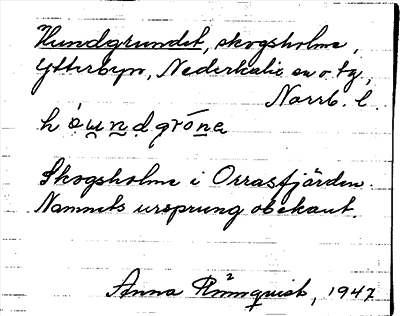 Hundgrundet, skogsholme,
Ytterbyn, Nederkalix sn o. tg,
Norrb. l.
ho̤u̲n̲dgróṉa
Skogsholme i Orrasfjärden.
Namnets ursprung obekant.
Anna Rönnquist, 1947